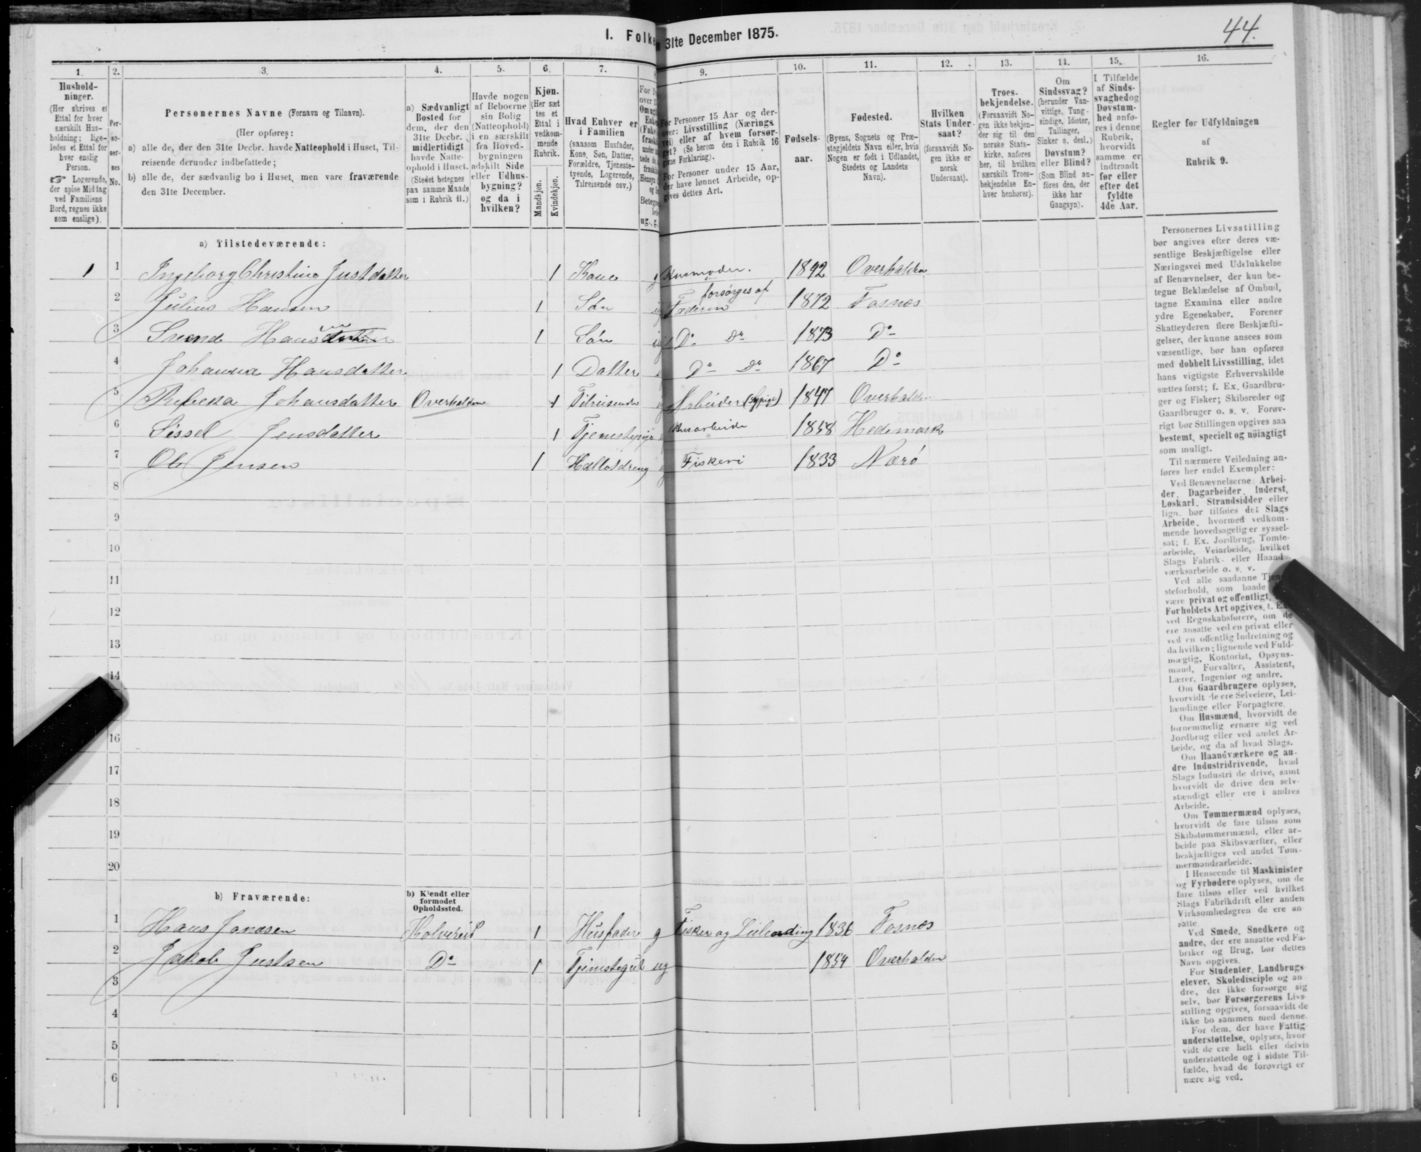 44.
I. Folke 31te December 1875.
1. 2. 3. 4. 5. 6. 7. 9. 10. 11. 12. 13. 14. 15. 16.
Hushold-
ninger.
(Her skrives et
Ettal for hver
særskilt Hus-
holdning; lige-
ledes et Ettal for
hver enslig
Person.
☞ Logerende,
der spise Middag
ved Familiens
Bord, regnes ikke
som enslige).
Per-
so-
ner-
nes
No.
Personernes Navne (Fornavn og Tilnavn).
(Her opføres:
a) alle de, der den 31te Decbr. havde Natteophold i Huset, Til-
reisende derunder indbefattede;
b) alle de, der sædvanlig bo i Huset, men vare fraværende
den 31te December.
a) Sædvanligt
Bosted for
dem, der den
31te Decbr.
midlertidigt
havde Natte-
ophold i Huset.
(Stedet betegnes
paa samme Maade
som i Rubrik 11.)
Havde nogen
af Beboerne
sin Bolig
(Natteophold)
i en særskilt
fra Hoved-
bygningen
adskilt Side
eller Udhus-
bygning?
og da i
hvilken?
Kjøn.
(Her sæt
tes et
Ettal i
vedkom-
mende
Rubrik.
Mandkjøn.
Kvindekjøn.
Hvad Enhver er
i Familien
(saasom Husfader,
Kone, Søn, Datter,
Forældre, Tjeneste-
tyende, Logerende,
Tilreisende osv.)
For Personer 15 Aar og der-
over: Livsstilling (Nærings
vei) eller af hvem forsør-
get? (Se herom den i Rubrik 16
givne Forklaring).
For Personer under 15 Aar,
der have lønnet Arbeide, op-
gives dettes Art.
Fødsels-
aar.
Fødested.
(Byens, Sognets og Præ-
stegjeldets Navn eller, hvis
Nogen er født i Udlandet,
Stedets og Landets
Navn).
Hvilken
Stats Under-
saat?
(forsaavidt No-
gen ikke er
norsk
Undersaat).
Troes-
bekjendelse.
(Forsaavidt No-
gen ikke bekjen-
der sig til den
norske Stats-
kirke, anføres
her, til hvilken
særskilt Troes-
bekjendelse En-
hver henhører).
Om
Sindssvag?
(herunder Van-
vittige, Tung-
sindige, Idioter,
Tullinger,
Sinker o. desl.)
Døvstum?
eller Blind?
(Som Blind an-
føres den, der
ikke har
Gangsyn).
I Tilfælde
af Sinds-
svaghed og
Døvstum-
hed anfø-
res i denne
Rubrik,
hvorvidt
samme er
indtraadt
før eller
efter det
fyldte
4de Aar.
Regler for Udfyldningen
af
Rubrik 9.
a) Tilstedeværende:
1 1 Ingeborg Christine Justdatter 1 Kone Husmoder. 1842 Overhalden
2 Julius Hansen 1 Søn forsørges af Faderen 1872 Fosnæs
3 Hans 1 Søn Do Do 1873 Do
4 Johanna Hansdatter 1 Datter Do Do 1867 Do
5 Rebekka Johansdatter Overhalden 1 Tilreisende Arbeider (Sypige) 1847 Overhalden
6 Sissel Jensdatter 1 Tjenestepige 1858 Hedemark
7 Ole Jensen 1 Fiskeri 1833 Nærø
8
9
10
11
12
13
14
16
17
18
19
20
b) Fraværende:
b) Kjendt eller
formodet
Opholdssted.
1 Hans Jandsen Kolvereid 1 Husfader g Fisker og Leilending 1836 Fosnæs
2 Jakob Justsen Do 1 Tjenestegut ug 1854 Overhalden
3
4
5
6
Personernes Livsstilling
bør angives efter deres væ-
sentlige Beskjæftigelse eller
Næringsvei med Udelukkelse
af Benævnelser, der kun be-
tegne Beklædelse af Ombud,
tagne Examina eller andre
ydre Egenskaber. Forener
Skatteyderen flere Beskjæfti-
gelser, der kunne ansees som
væsentlige, bør han opføres
med dobbelt Livsstilling, idet
hans vigtigste Erhvervskilde
sættes først; f. Ex. Gaardbru-
ger og Fisker; Skibsreder og
Gaardbruger o. s. v. Forøv-
rigt bør Stillingen opgives saa
bestemt, specielt og nøiagtigt
som muligt.
Til nærmere Veiledning an-
føres her endel Exempler:
Ved Benævnelserne: Arbei-
der, Dagarbeider, Inderst,
Løskarl, Strandsidder eller
lign. bør tilføies det Slags
Arbeide, hvormed vedkom-
mende hovedsagelig er syssel-
sat; f. Ex. Jordbrug, Tomte-
arbeide, Veiarbeide, hvilket
Slags Fabrik- eller Haand-
værksarbeide o. s. v.
Ved alle saadanne Tjene-
steforhold, som baade
være privat og offentligt,
Forholdets Art opgives, f. Ex.
ved Regnskabsførere, om de
ere ansatte ved en privat eller
ved en offentlig Indretning og
da hvilken; lignende ved Fuld-
mægtig, Kontorist, Opsyns-
mand, Forvalter, Assistent,
Lærer, Ingeniør og andre.
Om Gaardbrugere oplyses,
hvorvidt de ere Selveiere, Lei-
lændinge eller Forpagtere.
Om Husmænd, hvorvidt de
fornemmelig ernære sig ved
Jordbrug eller ved andet Ar-
beide, og da af hvad Slags.
Om Haandværkere og an-
dre Industridrivende, hvad
Slags Industri de drive, samt
hvorvidt de drive den selv-
stændigt eller ere i andres
Arbeide.
Om Tømmermænd oplyses,
hvorvidt de fare tilsøs som
Skibstømmermænd, eller ar-
beide paa Skibsværfter, eller
beskjæftiges ved andet Tøm-
mermandsarbeide.
I Henseende til Maskinister
og Fyrbødere oplyses, om de
fare tilsøs eller ved hvilket
Slags Fabrikdrift eller anden
Virksomhedsgren de ere an-
satte.
Ved Smede, Snedkere og
andre, der ere ansatte ved Fa-
briker og Brug, bør dettes
Navn opgives.
For Studenter, Landbrugs-
elever, Skoledisciple og an-
dre, der ikke forsørge sig
selv, bør Forsørgerens Livs-
stilling opgives, forsaavidt de
ikke bo sammen med denne.
For dem, der have Fattig-
understøttelse, oplyses, hvor-
vidt de ere helt eller delvis
understøttede og i sidste Til-
fælde, hvad de forøvrigt er
nære sig ved.